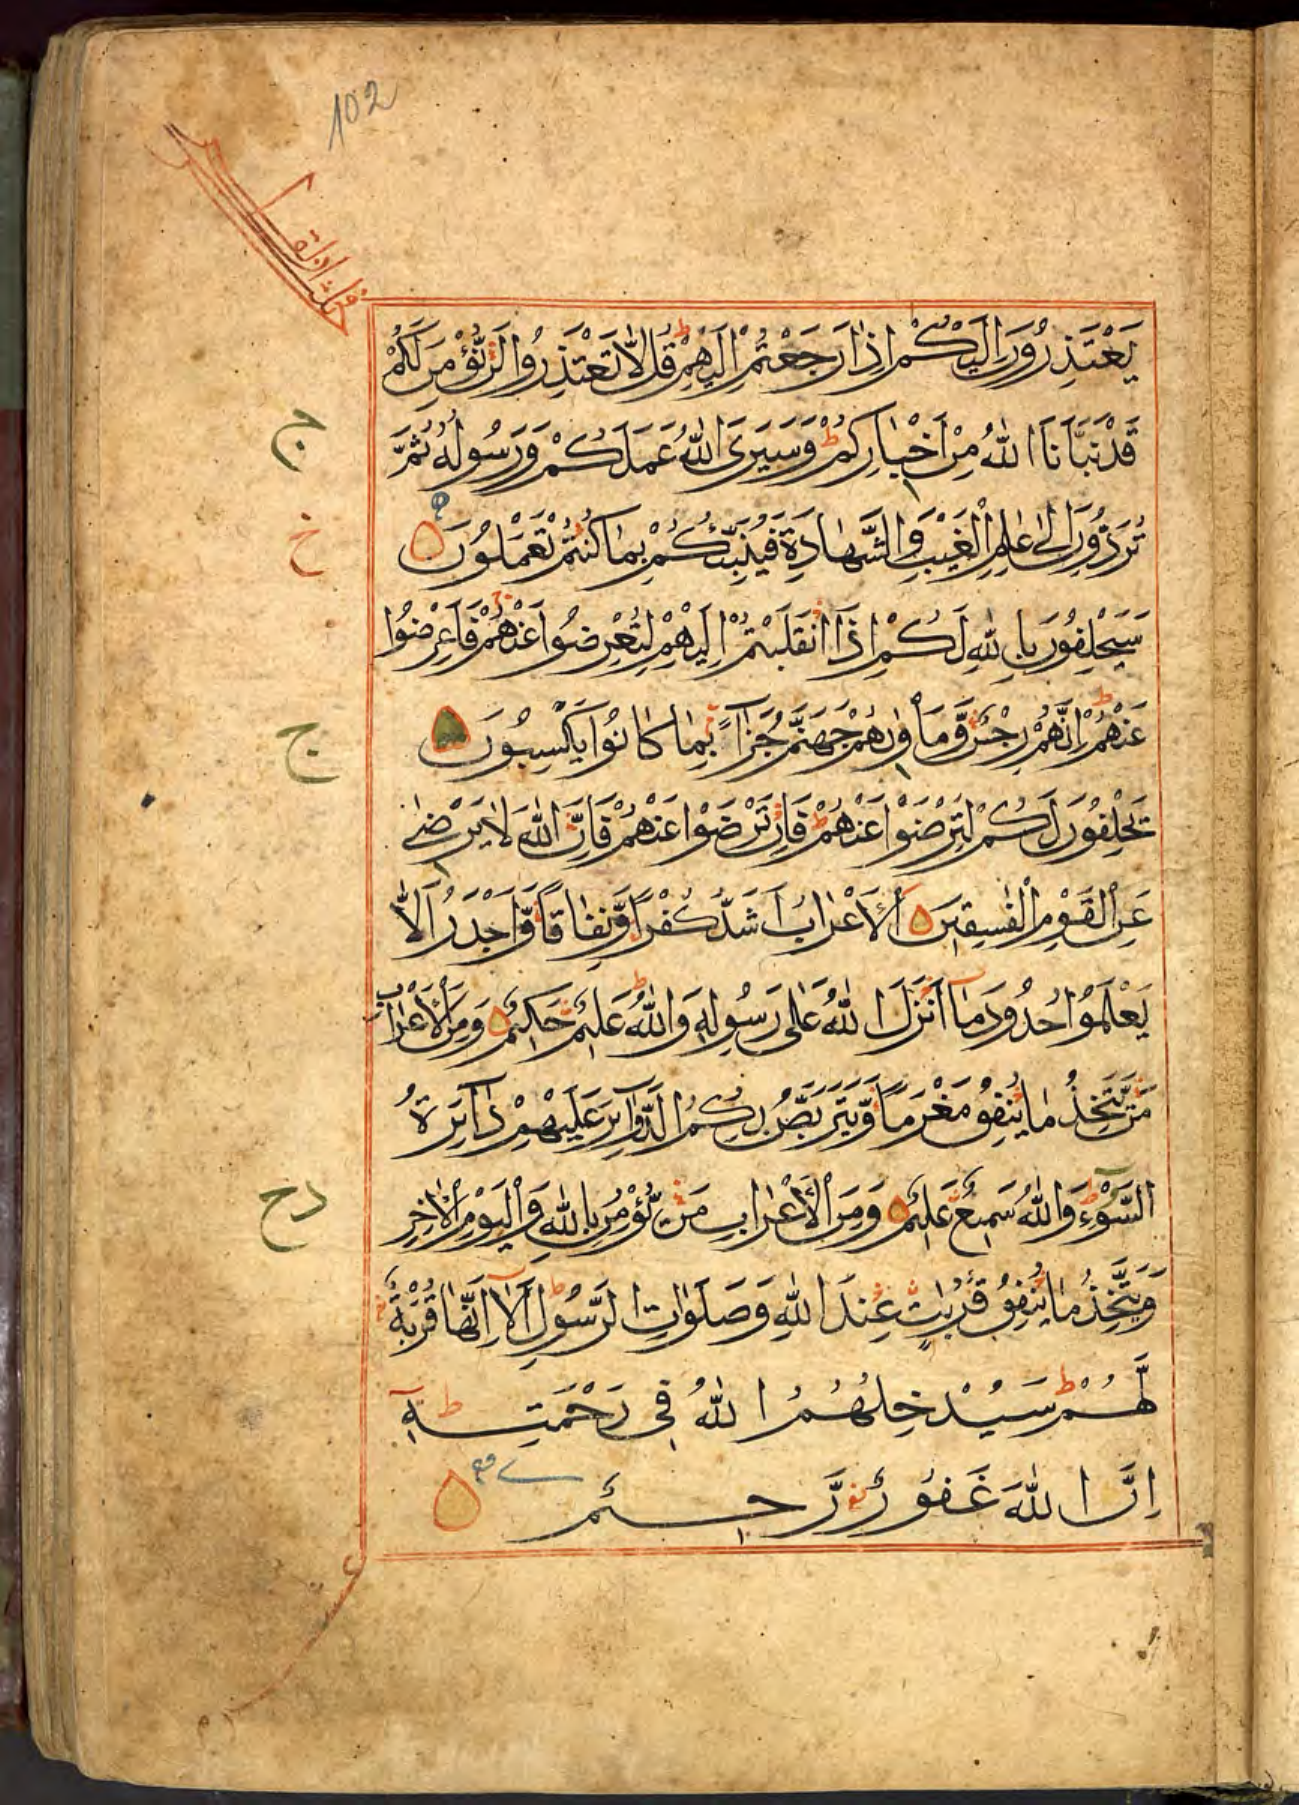 102
يَعْتَذِرُونَ اِلَيْكُمْ اِذَا رَجَعْتُمْ اِلَيْهِمْ ط قُلْ لَّا تَعْتَذِرُوا لَنْ نُّؤْمِنَ لَكُمْ
قَدْ نَبَّاَنَا اللهُ مِنْ اَخْبَارِكُمْ ط وَسَيَرَى اللهُ عَمَلَكُمْ وَرَسُولُهُ ثُمَّ
ج
تُرَدُّونَ اِلٰى عٰلِمِ الْغَيْبِ وَالشَّهَادَةِ فَيُنَبِّئُكُمْ بِمَا كُنْتُمْ تَعْمَلُونَ
خ
سَيَحْلِفُونَ بِاللهِ لَكُمْ اِذَا انْقَلَبْتُمْ اِلَيْهِمْ لِتُعْرِضُوا عَنْهُمْ فَاَعْرِضُوا
عَنْهُمْ ط اِنَّهُمْ رِجْسٌ وَّمَاْوٰىهُمْ جَهَنَّمُ جَزَآءً بِمَا كَانُوا يَكْسِبُونَ
ج
يَحْلِفُونَ لَكُمْ لِتَرْضَوْا عَنْهُمْ ط فَاِنْ تَرْضَوْا عَنْهُمْ فَاِنَّ اللهَ لَا يَرْضٰى
عَنِ الْقَوْمِ الْفٰسِقِينَ اَلْاَعْرَابُ اَشَدُّ كُفْرًا وَّنِفَاقًا وَّاَجْدَرُ اَلَّا
يَعْلَمُوا حُدُودَ مَآ اَنْزَلَ اللهُ عَلٰى رَسُولِهِ ط وَاللهُ عَلِيمٌ حَكِيمٌ وَمِنَ الْاَعْرَابِ
مَنْ يَّتَّخِذُ مَا يُنْفِقُ مَغْرَمًا وَّيَتَرَبَّصُ بِكُمُ الدَّوَآئِرَ عَلَيْهِمْ دَآئِرَةُ
السَّوْءِ ط وَاللهُ سَمِيعٌ عَلِيمٌ وَمِنَ الْاَعْرَابِ مَنْ يُّؤْمِنُ بِاللهِ وَالْيَوْمِ الْاٰخِرِ
دح
وَيَتَّخِذُ مَا يُنْفِقُ قُرُبَاتٍ عِنْدَ اللهِ وَصَلَوٰاتِ الرَّسُولِ ط اَلَآ اِنَّهَا قُرْبَةٌ
لَّهُمْ ط سَيُدْخِلُهُمُ اللهُ فِى رَحْمَتِهِ ط
اِنَّ اللهَ غَفُورٌ رَّحِيمٌ